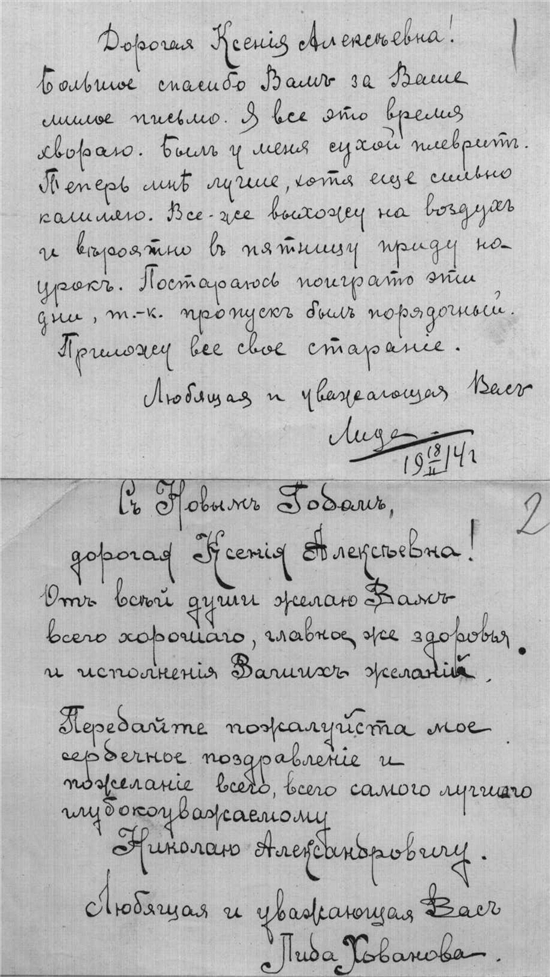 1
Дорогая Ксенія Алексѣевна!
Большое спасибо Вамъ за Ваше
милое письмо. Я все это время
хвораю. Былъ у меня сухой плевритъ.
Теперь мнѣ лучше, хотя еще сильно
кашляю. Все-же выхожу на воздухъ
и вѣроятно въ пятницу приду на
урокъ. Постараюсь поиграть эти
дни, т.-к. пропускъ былъ порядочный.
Приложу все свое стараніе.
Любящая и уважающая Васъ
Лида
19 18/II 14 г
2
Съ Новымъ Годомъ,
дорогая Ксенія Алексѣевна!
Отъ всѣй души желаю Вамъ
всего хорошаго, главное же здоровья
и исполненія Вашихъ желаній.
Передайте пожалуйста мое
сердечное поздравленіе и
пожеланіе всего, всего самого лучшаго
глубокоуважаемому
Николаю Александровичу.
Любящая и уважающая Васъ
Лида Хованова.